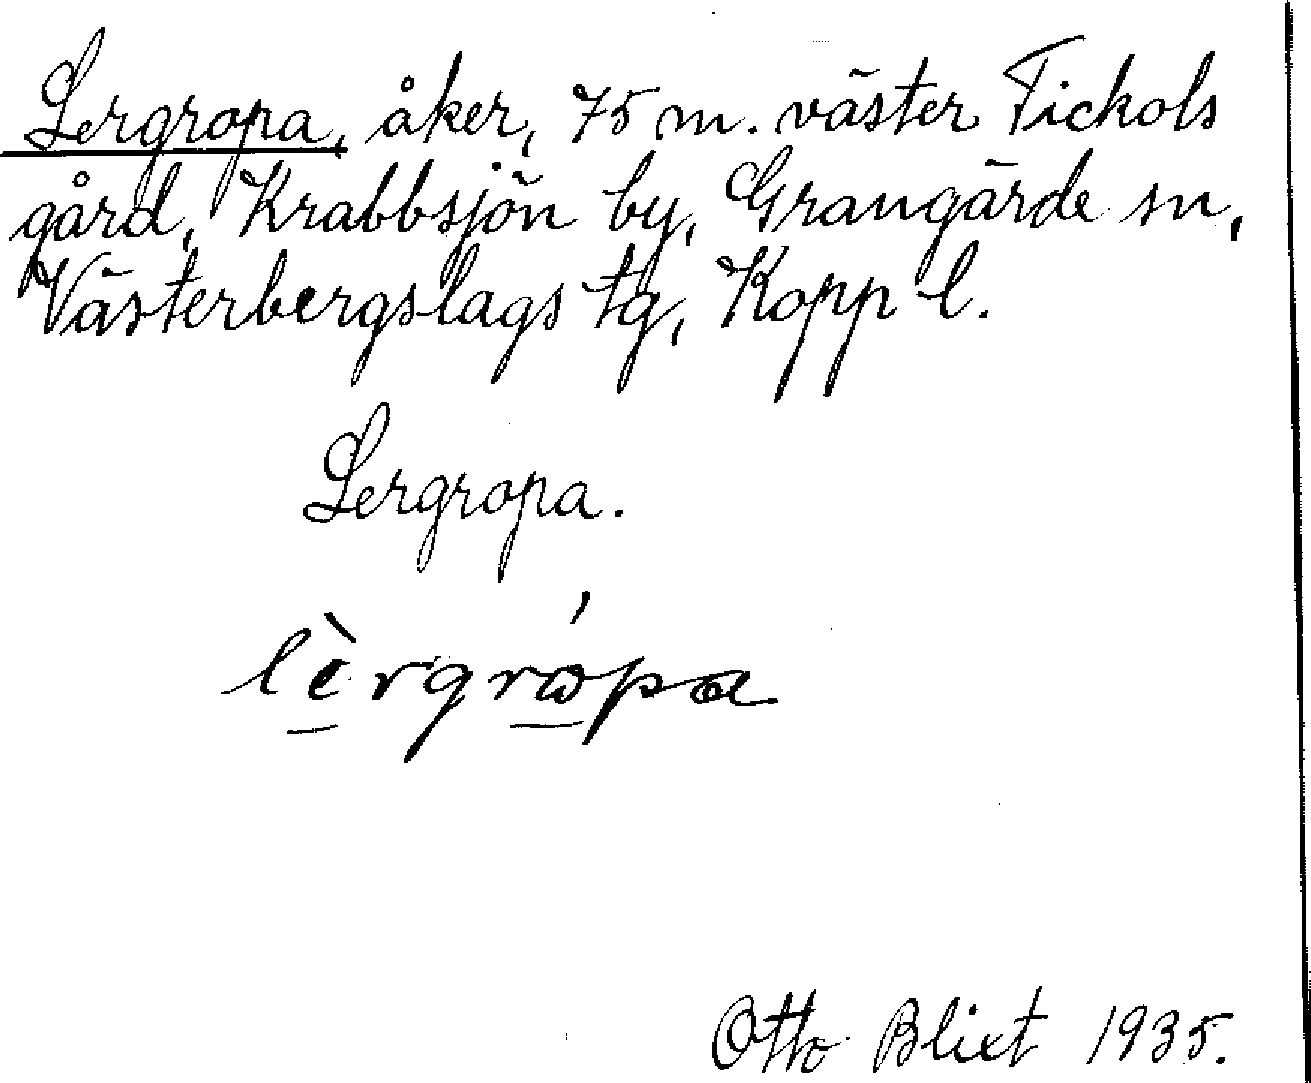 Lergropa, åker, 75 m. väster Fickols
gård, Krabbsjön by, Grangärde sn,
Västerbergslags tg, Kopp l.
Lergropa.
lèrgrópa
Otto Blixt 1935.